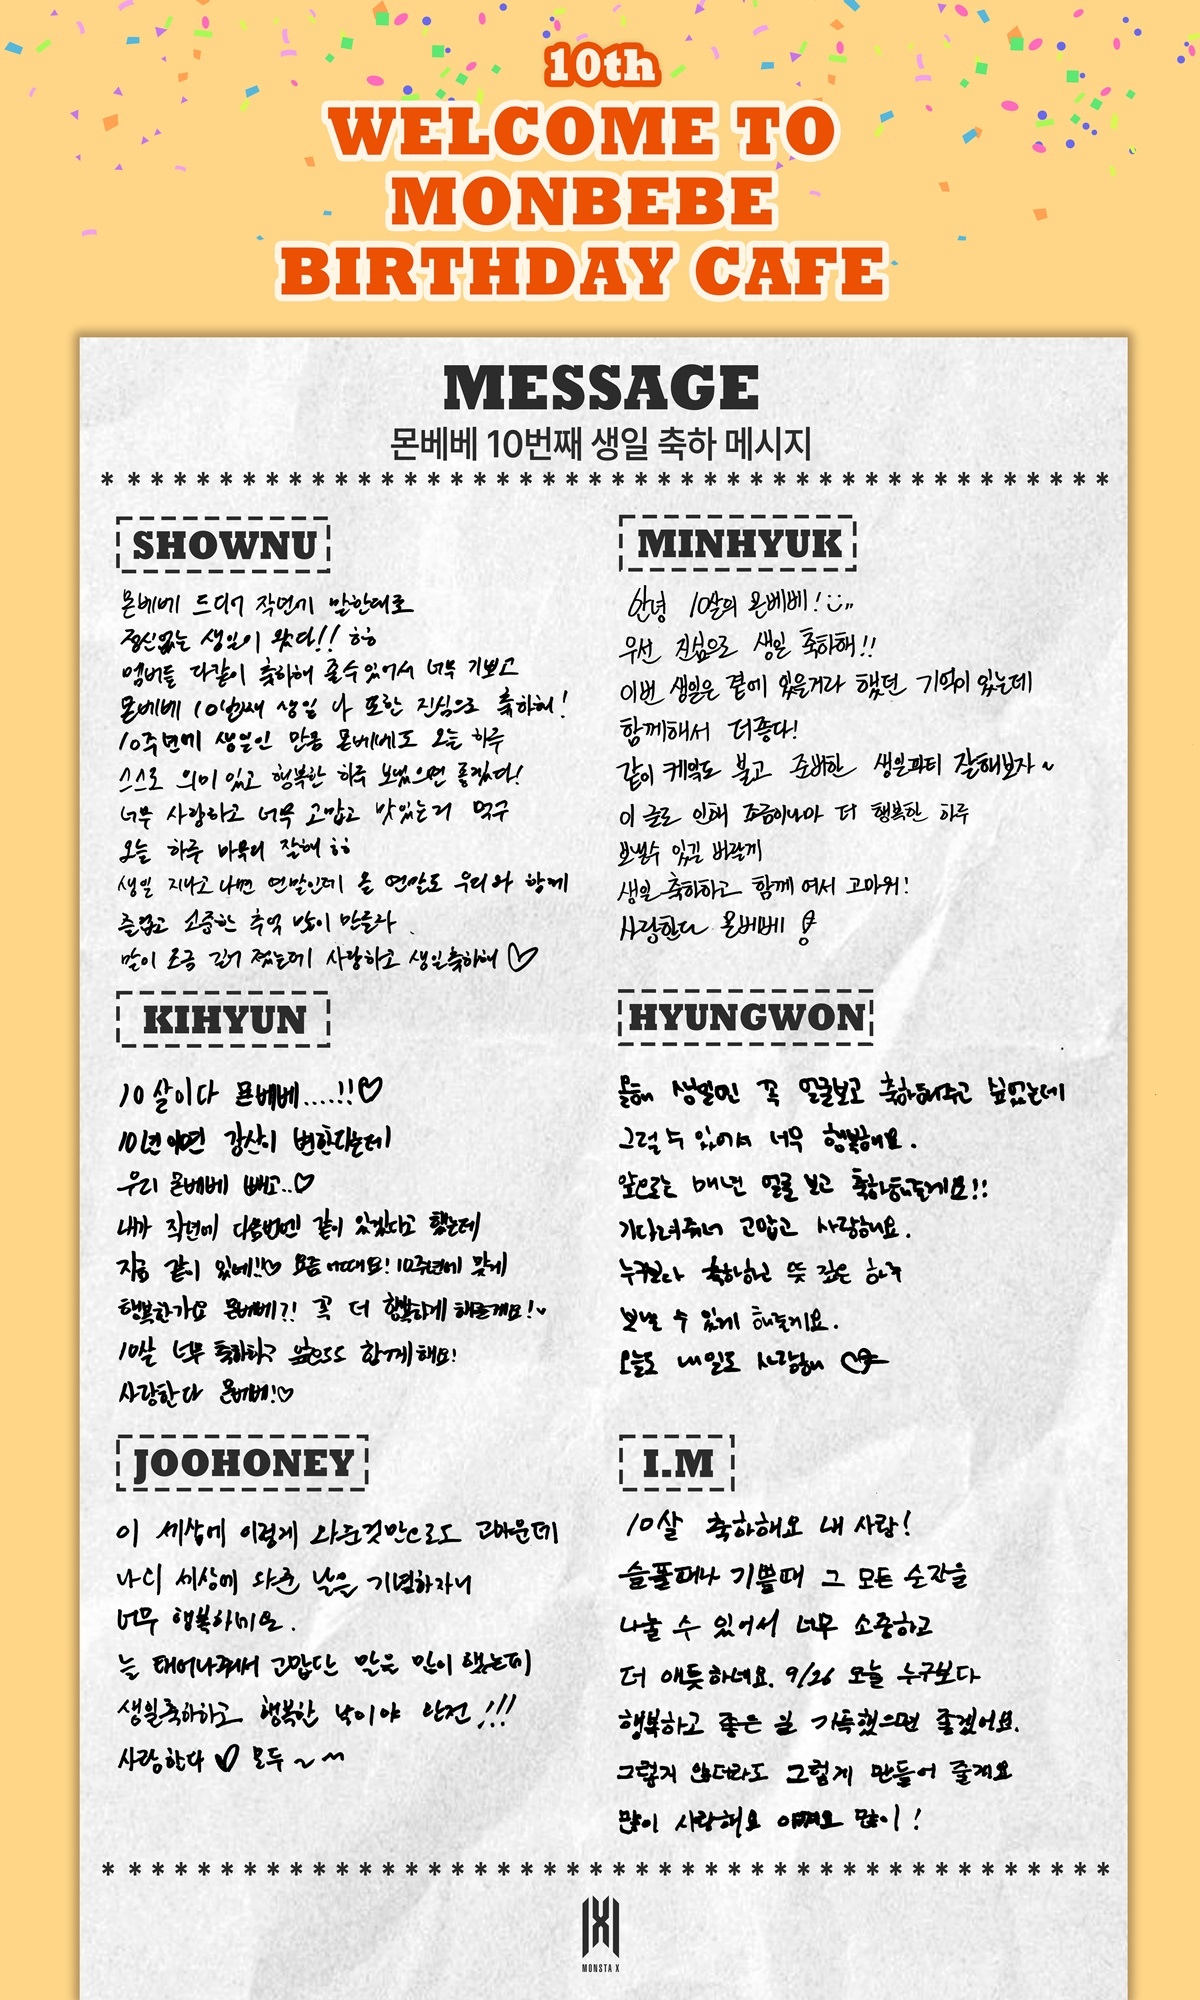 10th
WELCOME TO
MONBEBE
BIRTHDAY CAFE
MESSAGE
몬베베 10번째 생일 축하 메시지
SHOWNU
몬베베 드디어 작년에 말한대로
정신없는 생일이 왔다!! ㅎㅎ
멤버들 다같이 축하해 줄수있어서 너무 기쁘고
몬베베 10번째 생일 나 또한 진심으로 축하해!
10주년에 생일인 만큼 몬베베도 오늘 하루
스스로 의미있고 행복한 하루 보냈으면 좋겠다!
너무 사랑하고 너무 고맙고 맛있는거 먹구
오늘 하루 마무리 잘해 ㅎㅎ
생일 지나고 나면 연말인데 올 연말도 우리와 함께
즐겁고 소중한 추억 많이 만들자.
말이 조금 길어 졌는데 사랑하고 생일축하해 ♡
MINHYUK
안녕 10살의 몬베베!
우선 진심으로 생일 축하해!!
이번 생일은 곁에 있을거라 했던 기억이 있는데
함께해서 더좋다!
같이 케익도 불고 준비한 생일파티 잘해보자~
이 글로 인해 조금이나마 더 행복한 하루
보낼수 있길 바랄게
생일 축하하고 함께 여서 고마워!
사랑한다 몬베베
KIHYUN
10살이다 몬베베....!!♡
10년이면 강산이 변한다는데
우리 몬베베 빼고..♡
내가 작년에 다음번엔 같이 있겠다고 했는데
지금 같이 있네!!♡ 요즘 어때요! 10주년에 맞게
행복한가요 몬베베?! 꼭 더 행복하게 해줄게요!
10살 너무 축하하구 앞으로도 함께해요!
사랑한다 몬베베!♡
HYUNGWON
올해 생일엔 꼭 얼굴보고 축하해주고 싶었는데
그럴 수 있어서 너무 행복해요.
앞으로는 매년 얼굴 보고 축하해줄게요!!
기다려줘서 고맙고 사랑해요.
누구보다 축하하고 뜻 깊은 하루
보낼 수 있게 해줄게요.
오늘도 내일도 사랑해
JOOHONEY
이 세상에 이렇게 와준것만으로도 고마운데
나의 세상에 와준 날을 기념하자니
너무 행복하네요.
늘 태어나줘서 고맙단 말은 많이 했는데
생일축하하고 행복한 날이야 완전!!!
사랑한다 ♡ 모두~
I.M
10살 축하해요 내 사람!
슬플때나 기쁠때 그 모든 순간을
나눌 수 있어서 너무 소중하고
더 애틋하네요. 9/26 오늘 누구보다
행복하고 좋은 일 가득했으면 좋겠어요.
그렇지 않더라도 그렇게 만들어 줄게요
많이 사랑해요 아주 많이!
MONSTA X